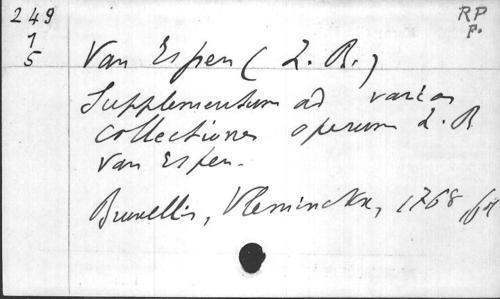 249
1
5
RP
P.
Van Espen (Z. B.)
Supplementum ad varias
collectiones operum Z. B.
Van Espen.
Bruxellis, Vleminckx, 1768